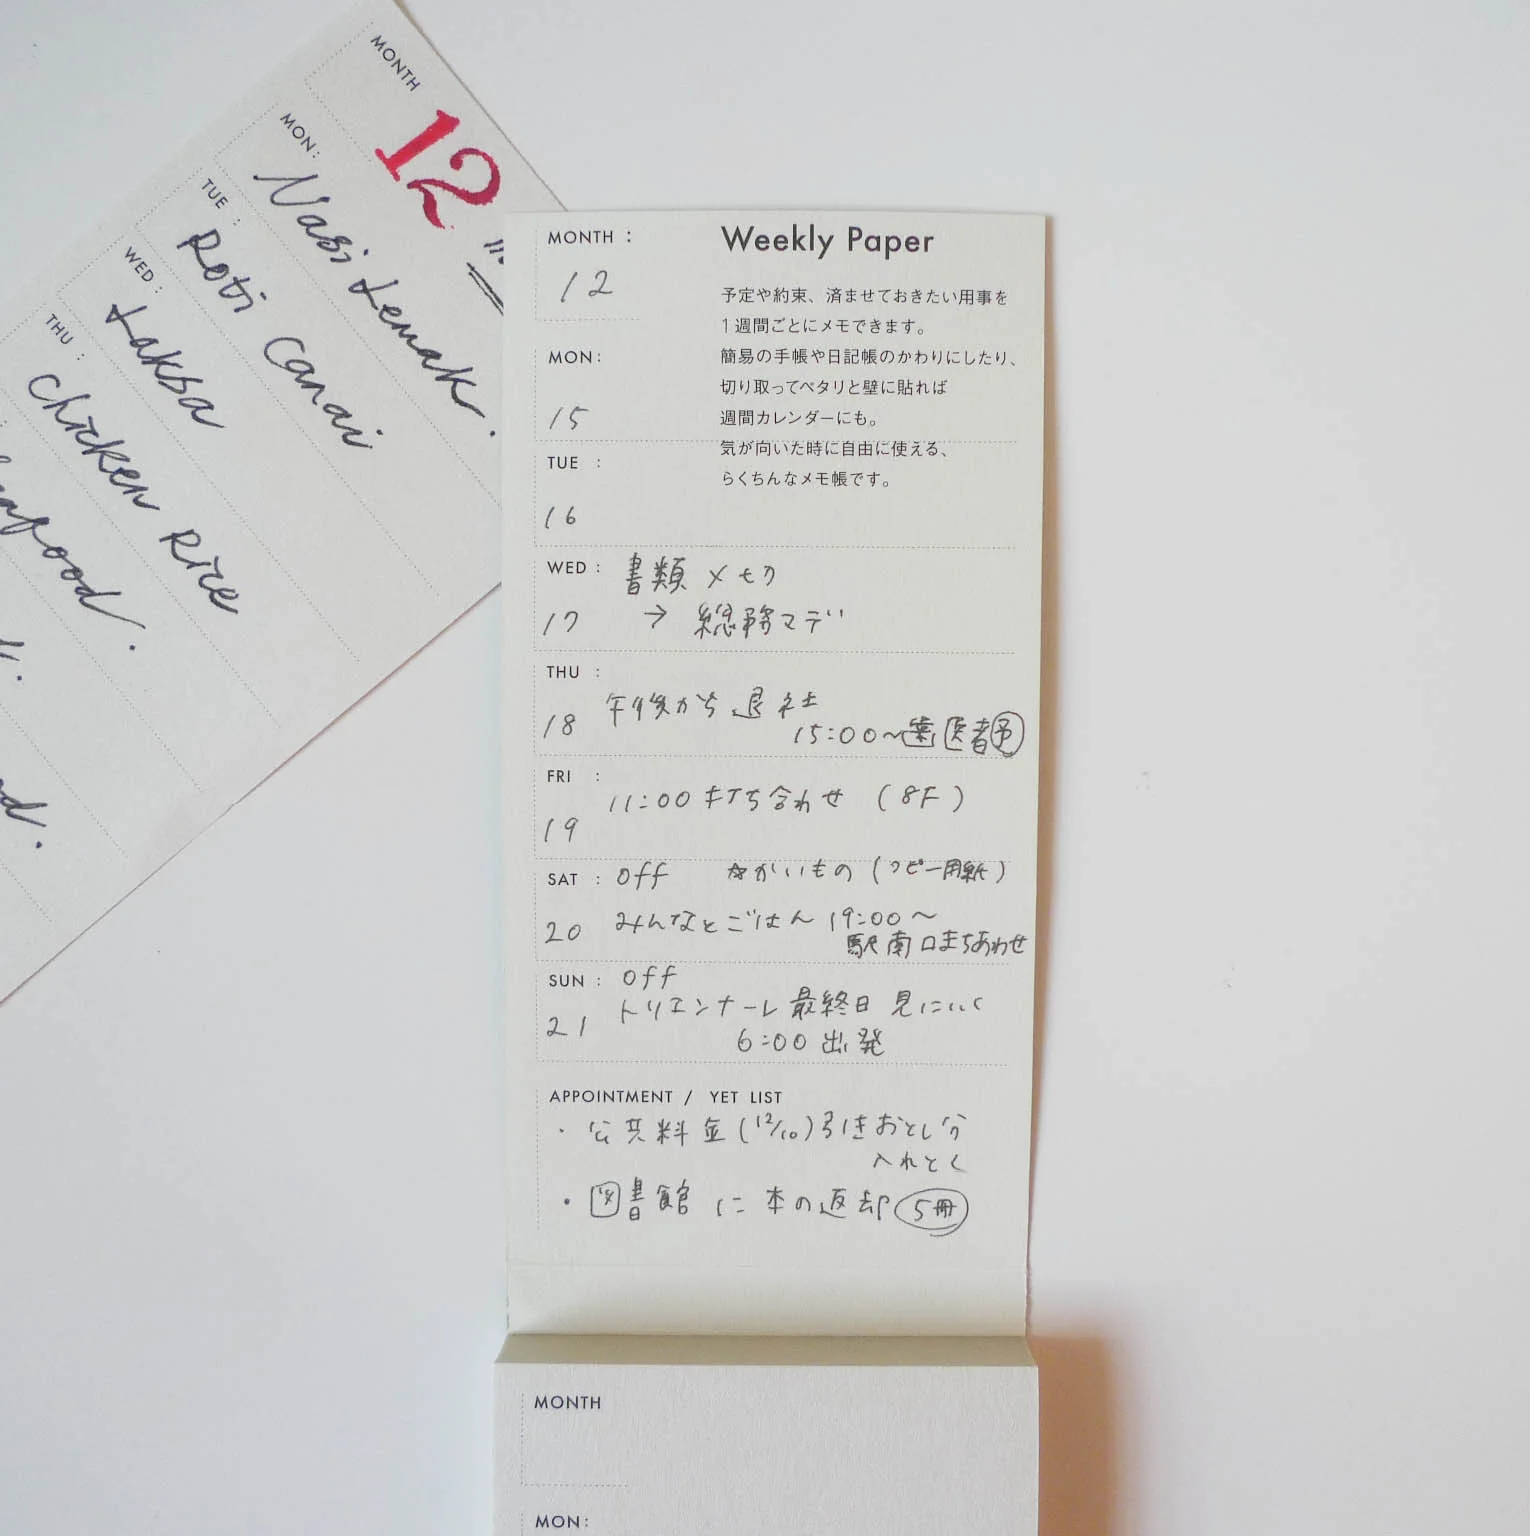 MONTH
12
MON:
Nasi Lemak.
TUE :
Roti Canai
WED :
Laksa
THU :
Chicken Rice
MONTH :
12
Weekly Paper
予定や約束、済ませておきたい用事を
1週間ごとにメモできます。
簡易の手帳や日記帳のかわりにしたり、
切り取ってペタリと壁に貼れば
週間カレンダーにも。
気が向いた時に自由に使える、
らくちんなメモ帳です。
MON:
15
TUE :
16
WED :
17
書類〆切
→ 総務マデ
THU :
18
午後から退社
15:00~歯医者予
FRI :
19
11:00 打ち合わせ (8F)
SAT :
20
off ☆かいもの(コピー用紙)
みんなとごはん 19:00~
駅南口まちあわせ
SUN :
21
off
トリエンナーレ最終日 見にいく
6:00 出発
APPOINTMENT / YET LIST
・公共料金(12/10)引きおとし分
入れとく
・図書館に本の返却 5冊
MONTH
MON: